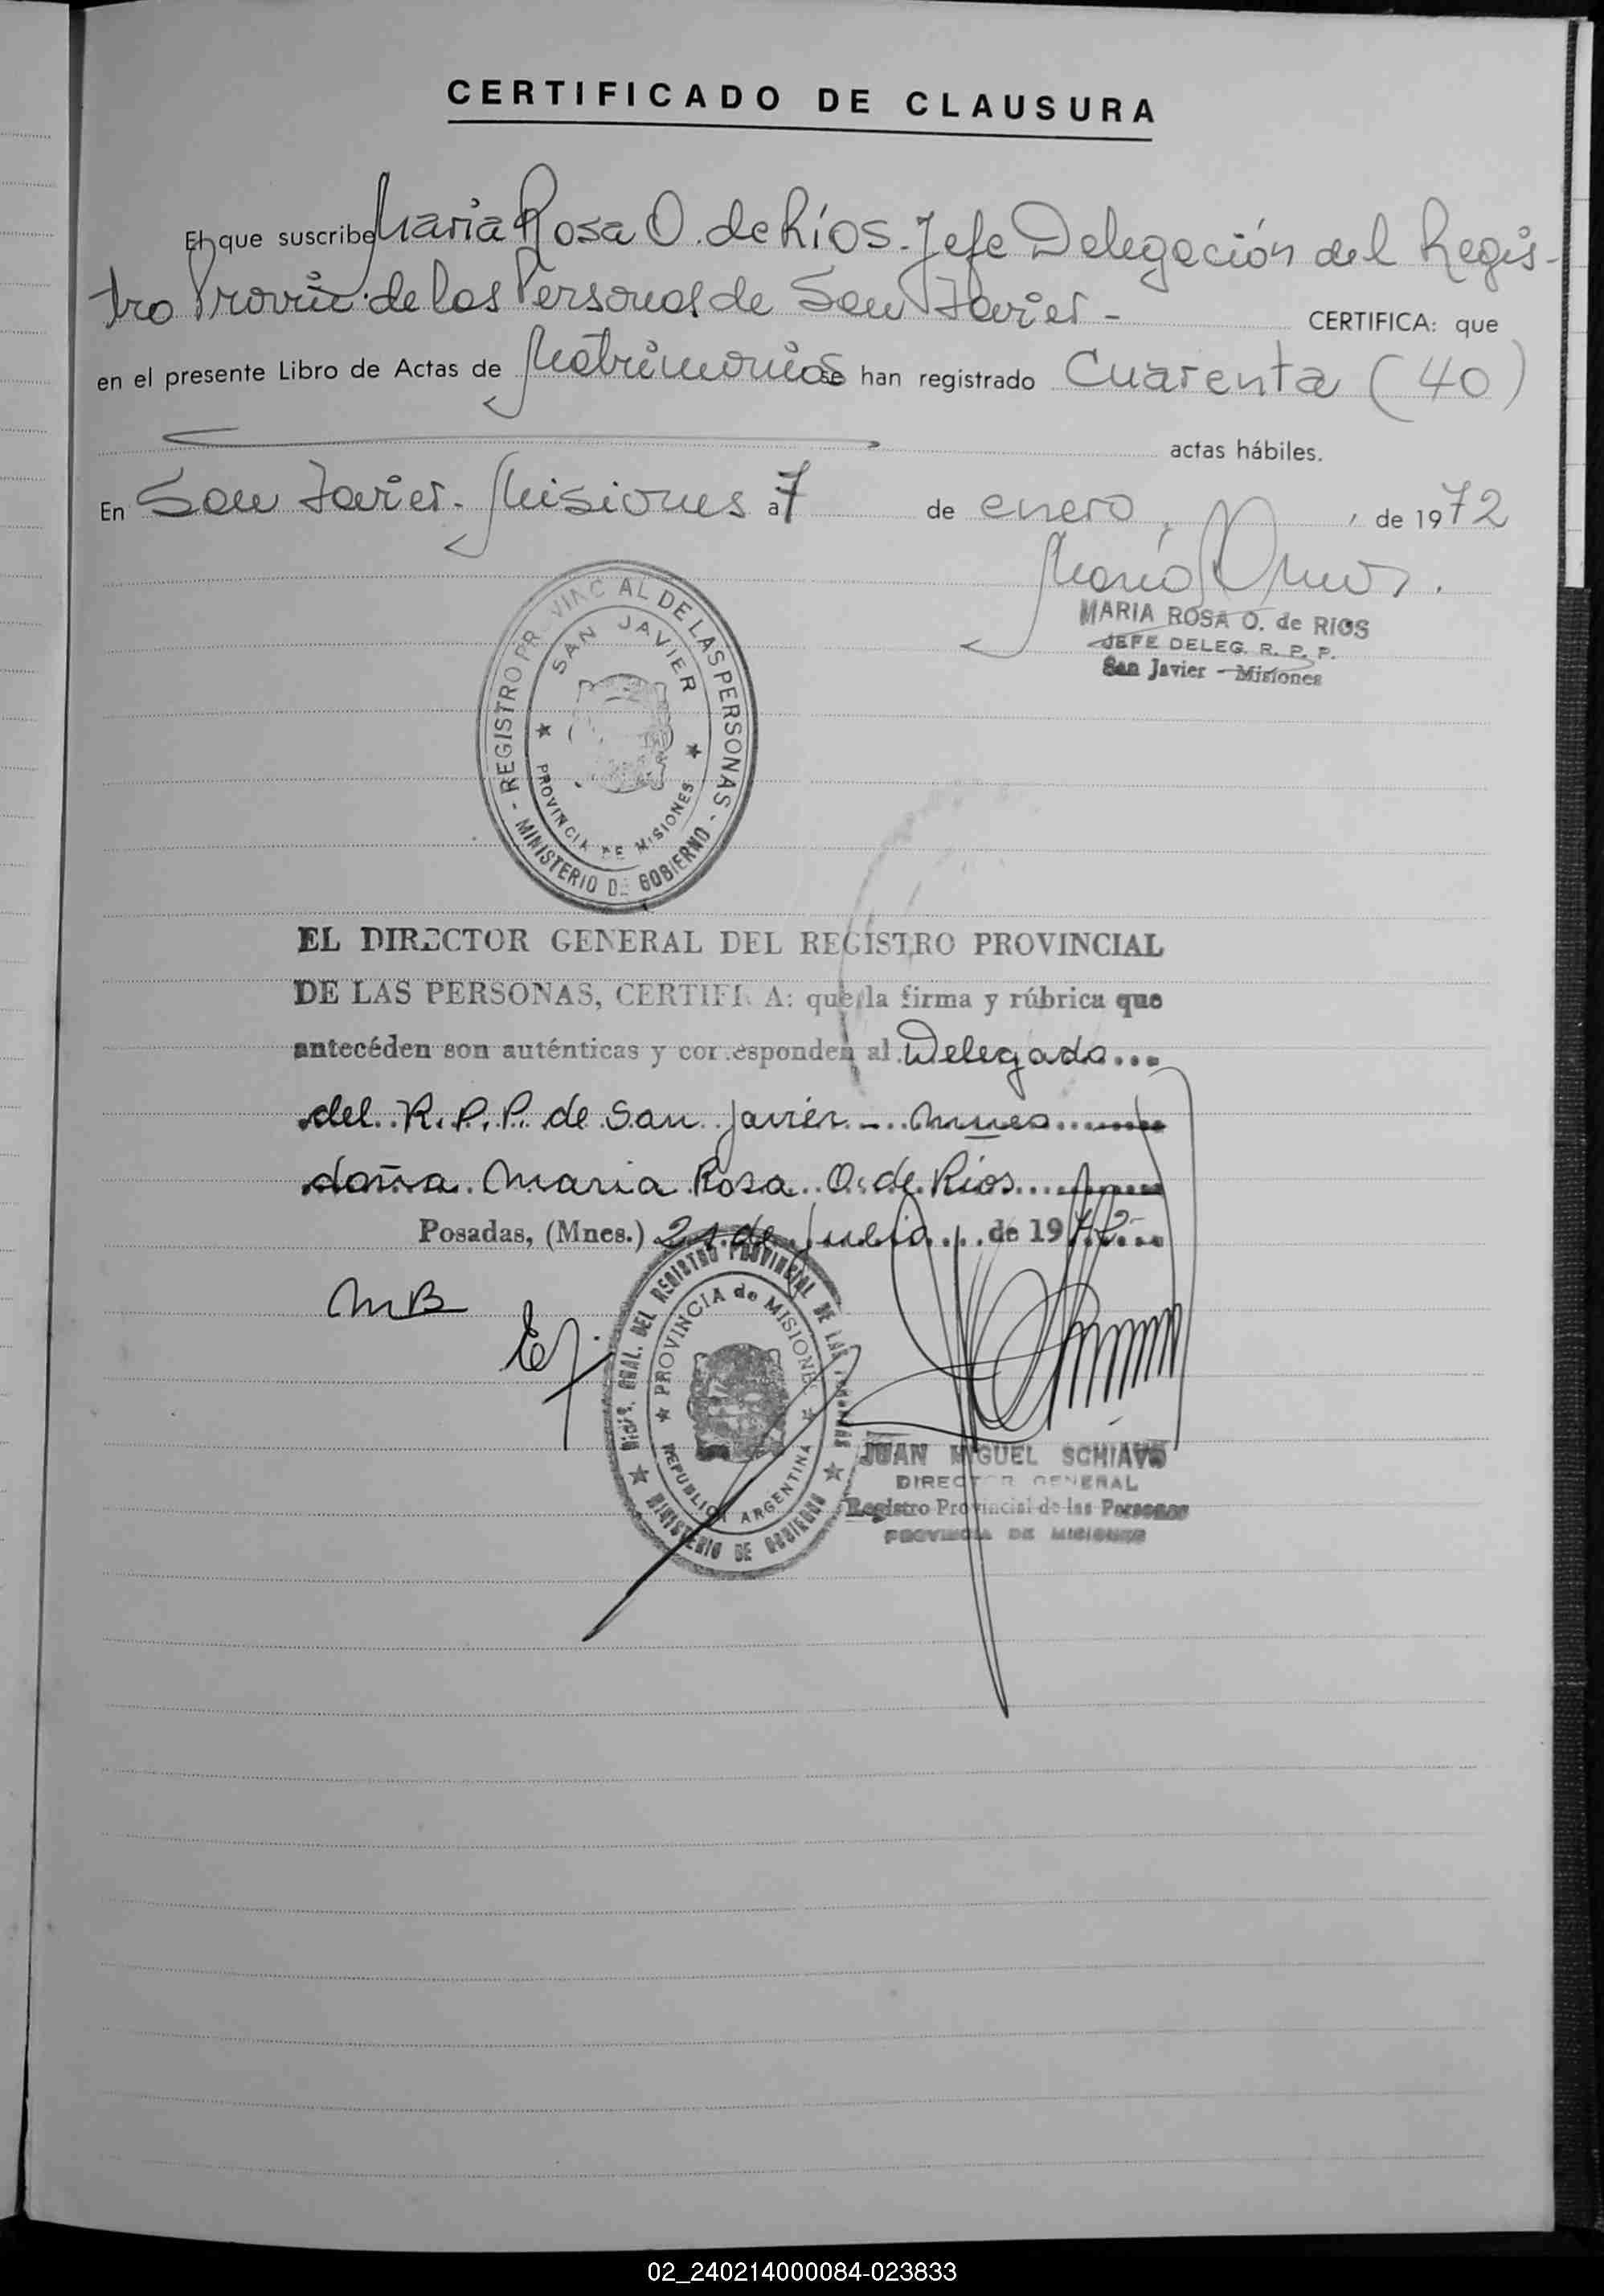 CERTIFICADO DE CLAUSURA
El que suscribe Maria Rosa O. de Ríos - Jefe Delegación del Regis-
tro Provin. de las Personas de San Javier - CERTIFICA: que
en el presente Libro de Actas de Matrimonios se han registrado Cuarenta (40)
actas hábiles.
En San Javier - Misiones a 7 de enero, de 1972
MARIA ROSA O. de RIOS
JEFE DELEG. R. P. P.
San Javier - Misiones
- REGISTRO PR VINC AL DE LAS PERSONAS -
SAN JAVIER
PROVINCIA DE MISIONES
MINISTERIO DE GOBIERNO
EL DIRECTOR GENERAL DEL REGISTRO PROVINCIAL
DE LAS PERSONAS, CERTIFI A: que la firma y rúbrica que
antecéden son auténticas y corresponden al Delegado...
del R.P.P. de San Javier - Mnes
doña Maria Rosa O. de Ríos
Posadas, (Mnes.) 21 de Julio de 1972
MB
DIREC. GRAL. DEL REGISTRO PROVINCIAL DE LAS PERSONAS
PROVINCIA de MISIONES
REPUBLICA ARGENTINA
MINISTERIO DE GOBIERNO
JUAN MIGUEL SCHIAVO
DIRECTOR GENERAL
Registro Provincial de las Personas
PROVINCIA DE MISIONES
02_240214000084-023833